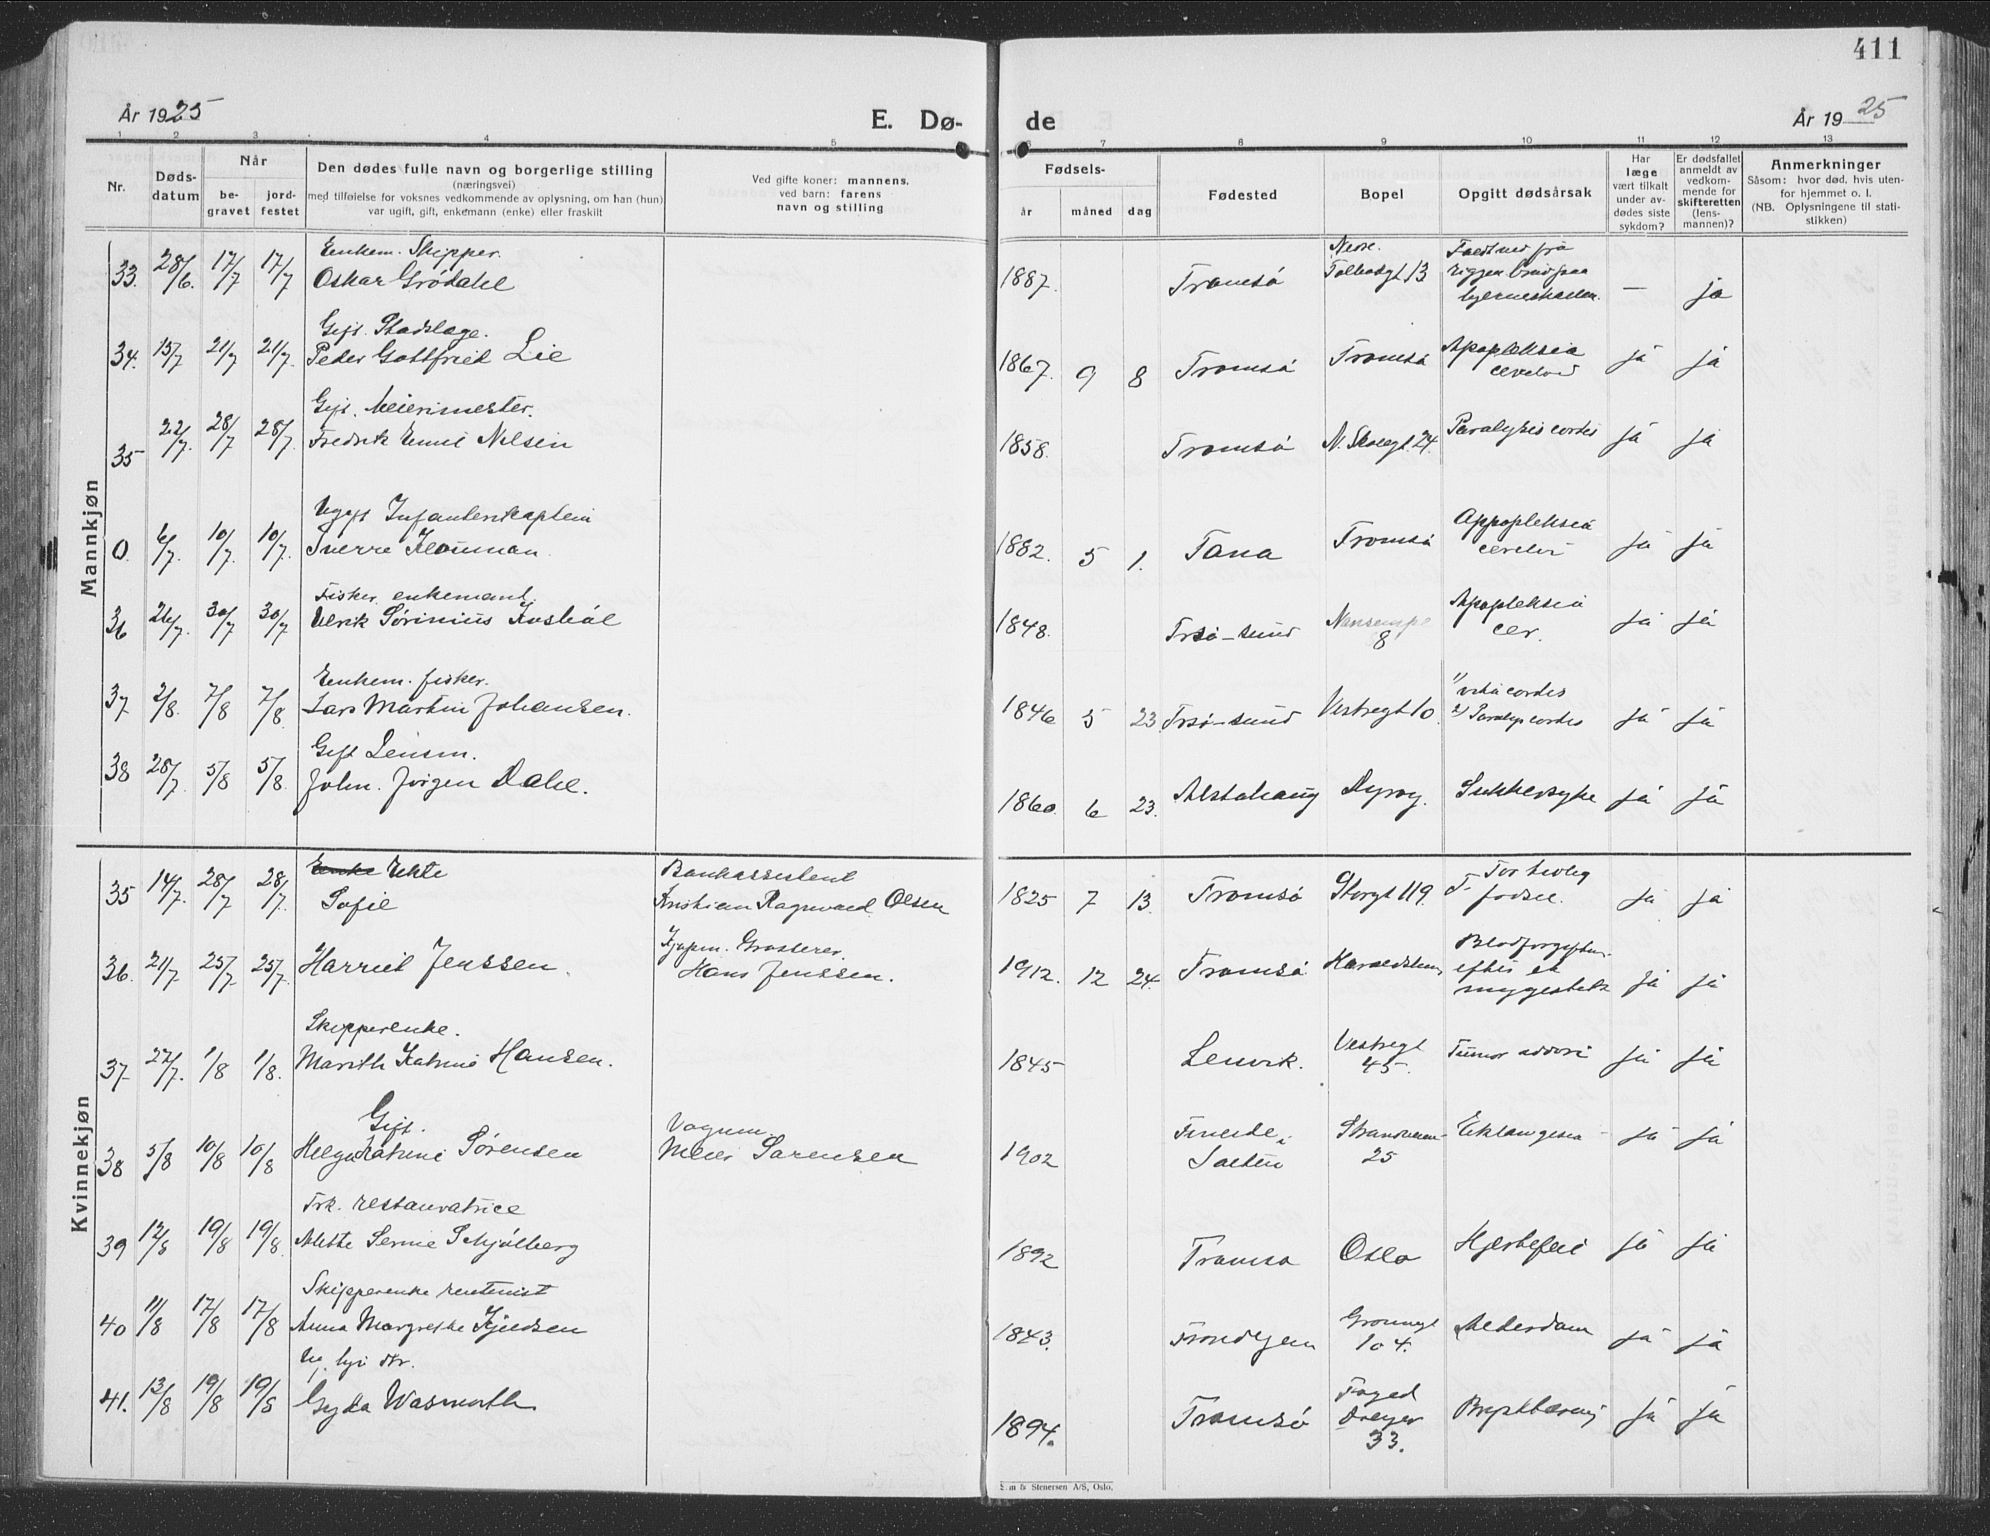 411
År 1925
E. Dø-
de
År 1925
1 2 3 4 5 6 7 8 9 10 11 12 13
Nr.
Døds-
datum
Når
be-
gravet
jord-
festet
Den dødes fulle navn og borgerlige stilling
(næringsvei)
med tilføielse for voksnes vedkommende av oplysning, om han (hun)
var ugift, gift, enkemann (enke) eller fraskilt
Ved gifte koner: mannens,
ved barn: farens
navn og stilling
Fødsels-
år måned dag
Fødested
Bopel
Opgitt dødsårsak
Har
læge
vært tilkalt
under av-
dødes siste
sykdom?
Er dødsfallet
anmeldt av
vedkom-
mende for
skifteretten
(lens-
mannen)?
Anmerkninger
Såsom: hvor død, hvis uten-
for hjemmet o. l.
(NB. Oplysningene til stati-
stikken)
Mannkjøn
Enkem. Skipper.
33. 28/6. 17/7 17/7 Oskar Grödahl 1887. Tromsö Tolbodgt 13 — ja
Gift. Stadslæge.
34. 15/7 21/7 21/7. Peder Gottfried Lie 1867. 9 8 Tromsö Tromsö Apopleksia ja ja
Gift. Meierimester.
35 22/7. 28/7 28/7. Fredrik Emil Nilsen 1858. Tromsö N. Skolegt. 24. Paralysis cordis ja ja
Ugift Infanterikaptein
0. 6/7. 10/7. 10/7. Sverre Klouman. 1882. 5 1. Tana Tromsö Appopleksia ja ja
Fisker, enkemand.
36 26/7. 30/7 30/7 Ulrik Sörinius 1848. Trsö-sund 8 Apopleksia cer. ja ja
Enkem. fisker.
37 2/8. 7/8 7/8. Lars Martin Johansen. 1846 5 23 Trsö-sund Vestregt 10. 1/ vitia cordis
2/ Paralys cordis ja ja
Gift Lensm.
38 28/7. 5/8 5/8. John. Jörgen Dahl. 1860. 6 23. Alstahaug Dyröy. Sukkersyke ja ja
Kvinnekjøn
Enke Ekte Bankassistent
35 14/7. 28/7 28/7. Sofie Kristian Ragnvald Olsen 1825 7 13. Tromsö Storgt 119. For tidlig
födsel. ja ja
Kjøpm. Grosserer.
36. 21/7 25/7. 25/7. Harriet Jenssen. Hans Jenssen. 1912. 12 24. Tromsö Blodforgiftn.
efter et
myggestikk ja ja
Skipperenke.
37 27/7. 1/8 1/8. Marith Katrine Hansen. 1845 Lenvik. Vestregt
45. Tumor ja ja
Gift. Vognm.
38 5/8 10/8 10/8 Helga Katrine Sørensen Meier Sørensen 1902 Salten 25 Eklampsia ja ja
Frk. restauratrice
39 12/8 19/8 19/8. Alette Serine Schjölberg 1892 Tromsö Oslo Hjertefeil ja ja
Skipperenke rentenist
40 11/8 17/8 17/8 Anna Margrethe Kjeldsen 1843. Trondhjem Grönnegt
104. Alderdom ja ja
41. 13/8 19/8 19/8 Gyda Wasmuth 1894. Tromsö Foged
Dreyer
33. ja ja
Sem & Stenersen A/S, Oslo.